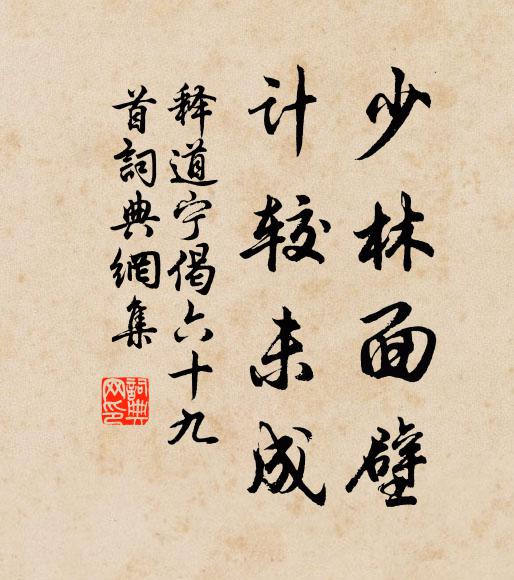 少林面壁
计较未成
释道宁偈六十九
首詞典網集
詞典
网印